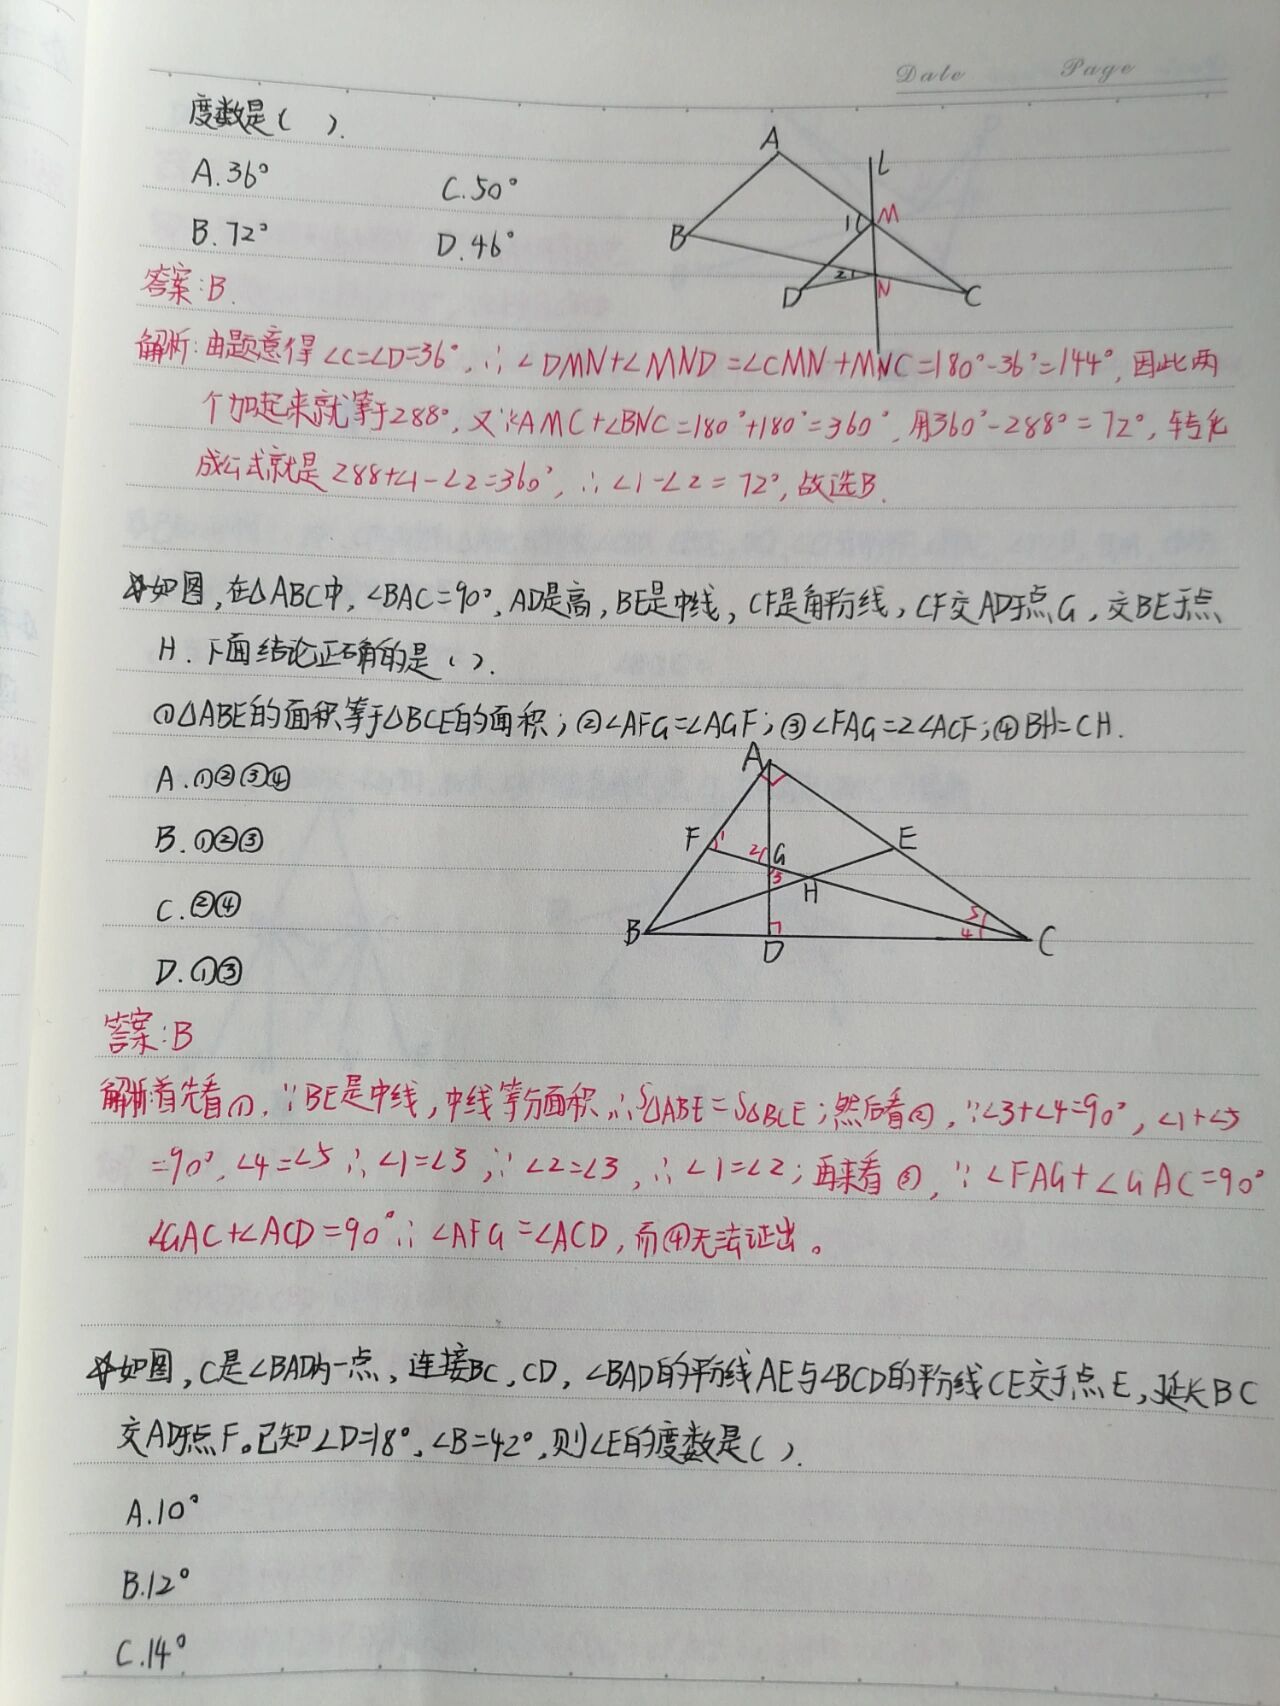 Date Page
度数是( ).
A.36° C.50°
B.72° D.46°
A
L
B
1
M
2
D
N
C
答案:B.
解析:由题意得∠C=∠D=36°,∴∠DMN+∠MND=∠CMN+MNC=180°-36°=144°,因此两
个加起来就等于288°,又∵∠AMC+∠BNC=180°+180°=360°,用360°-288°=72°,转化
成公式就是288+∠1-∠2=360°,∴∠1-∠2=72°,故选B.
如图,在△ABC中,∠BAC=90°,AD是高,BE是中线,CF是角平分线,CF交AD于点G,交BE于点
H.下面结论正确的是( ).
①△ABE的面积等于△BCE的面积;②∠AFG=∠AGF;③∠FAG=2∠ACF;④BH=CH.
A.①②③④
B.①②③
C.②④
D.①③
A
F
1
2
G
E
3
H
5
4
B
D
C
答案:B
解析:首先看①,∵BE是中线,中线等分面积,∴S△ABE=S△BCE;然后看②,∵∠3+∠4=90°,∠1+∠5
=90°,∠4=∠5∴∠1=∠3,∵∠2=∠3,∴∠1=∠2;再来看③,∵∠FAG+∠GAC=90°
∠GAC+∠ACD=90°∴∠AFG=∠ACD,而④无法证出。
如图,C是∠BAD内一点,连接BC,CD,∠BAD的平分线AE与∠BCD的平分线CE交于点E,延长BC
交AD于点F。已知∠D=18°,∠B=42°,则∠E的度数是( ).
A.10°
B.12°
C.14°